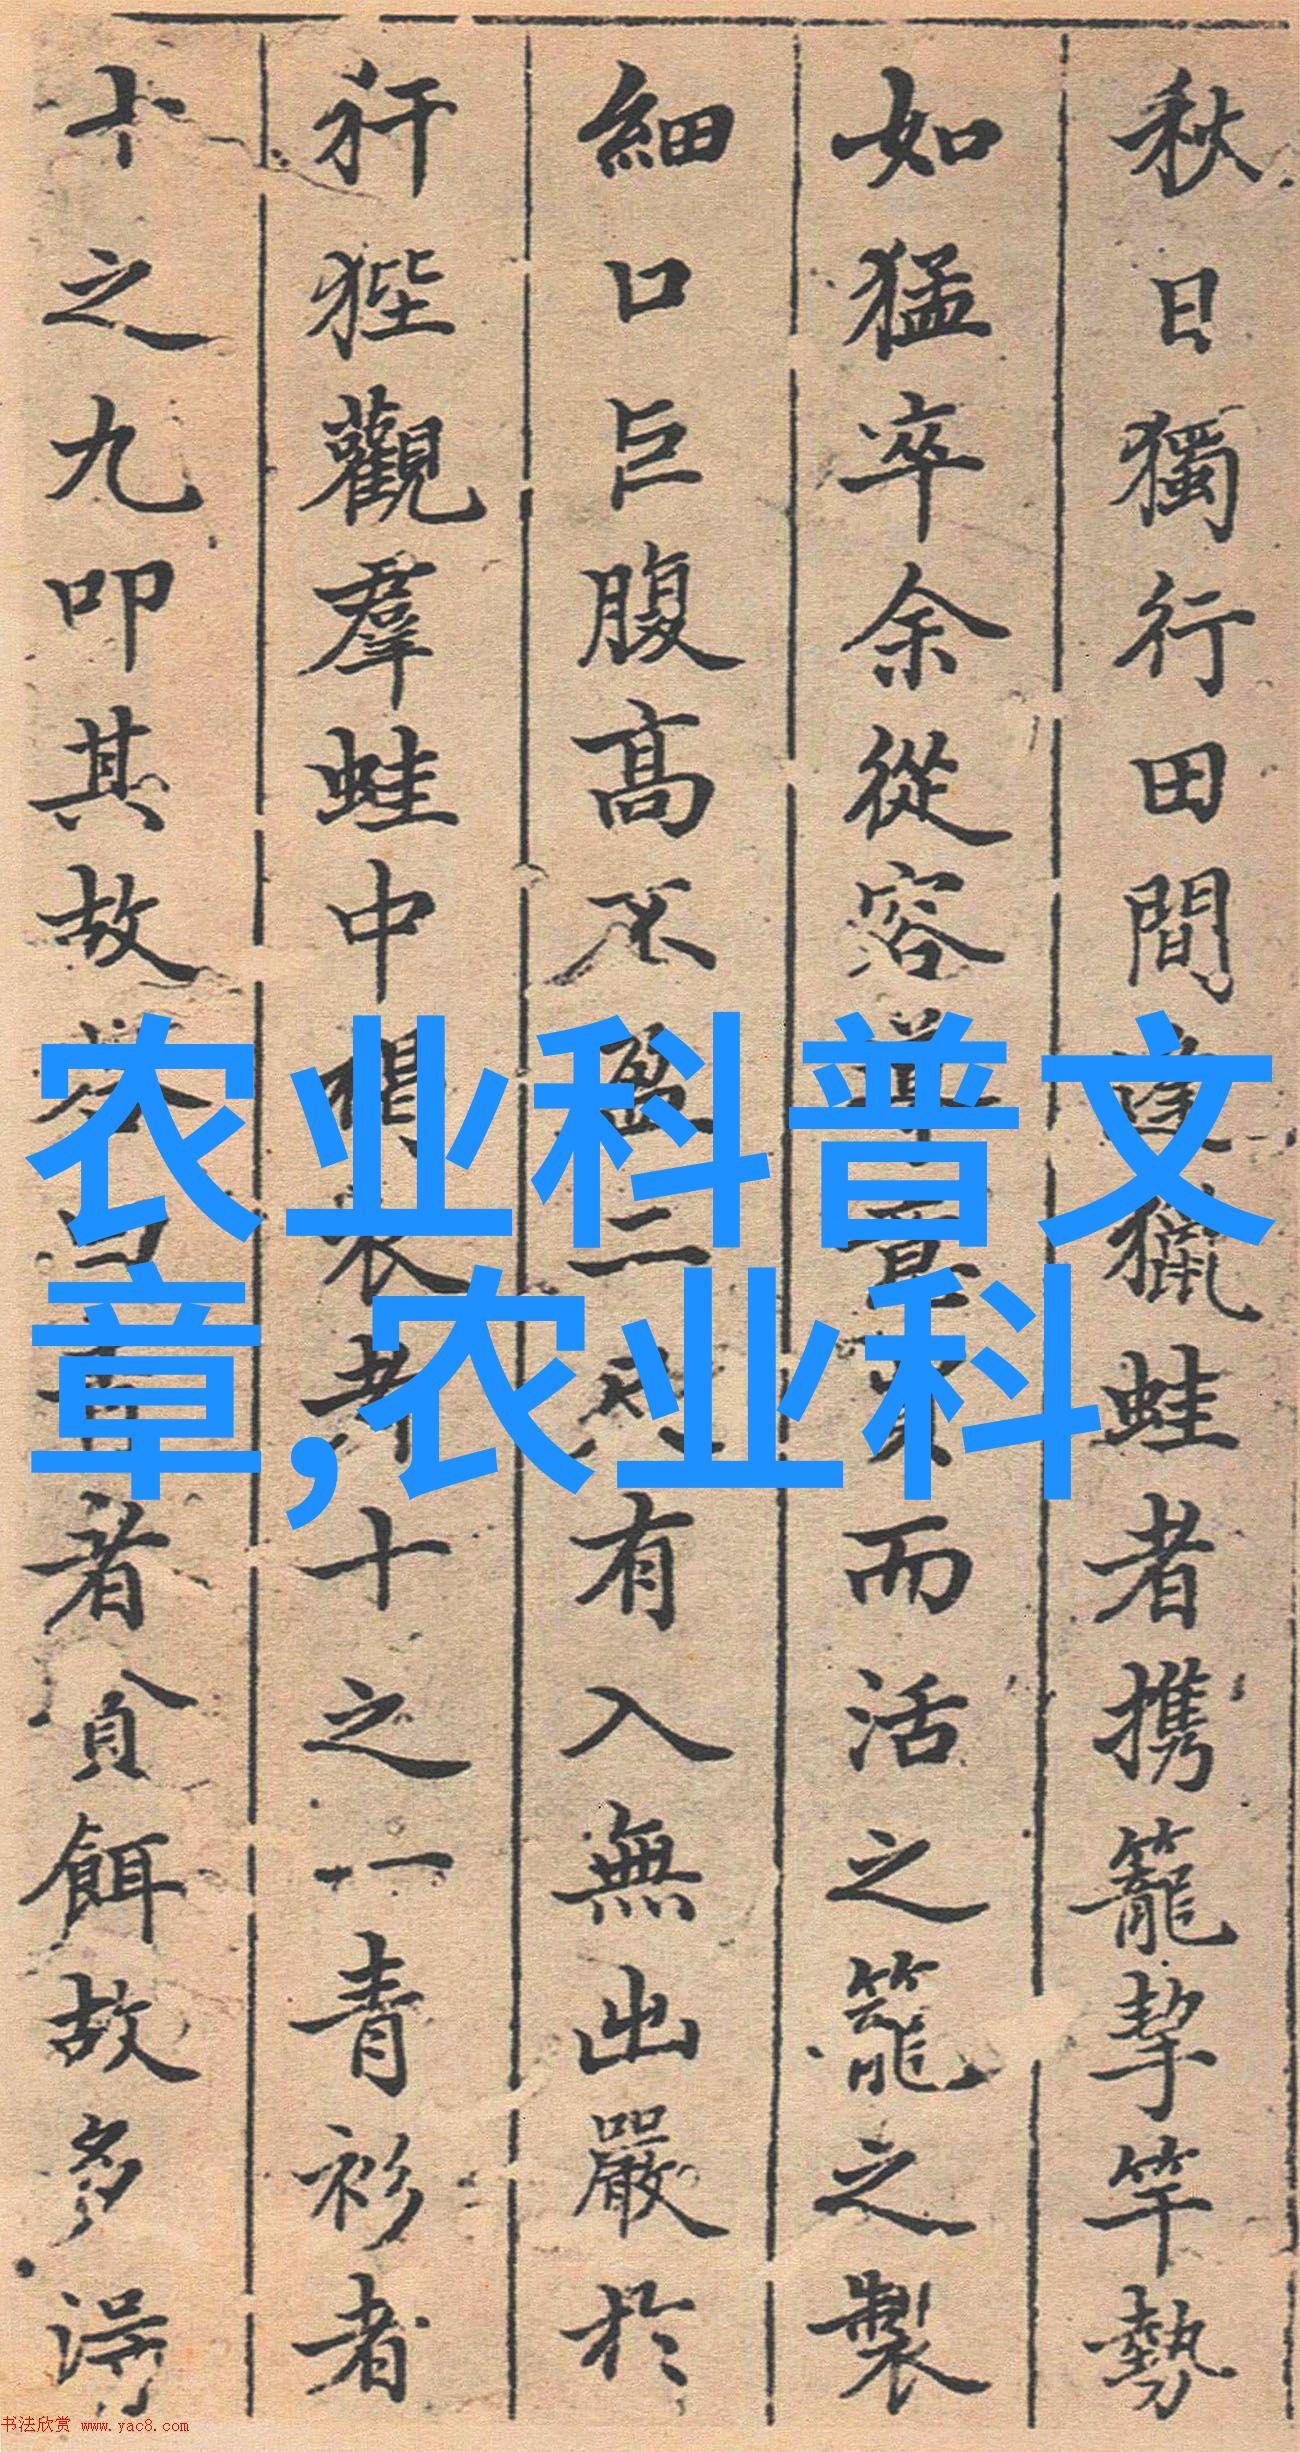 秋日獨行田間逢獵蛙者携籠挈竿勢
如猛卒余從容而活之籠之製
細口巨腹高不盈二尺有入無出嚴於
犴狴觀羣蛙中褐衣十之一青衫者
十之九叩其故答曰者貪餌故多得
农业科普文
章,农业科
书法欣赏 www.yac8.com